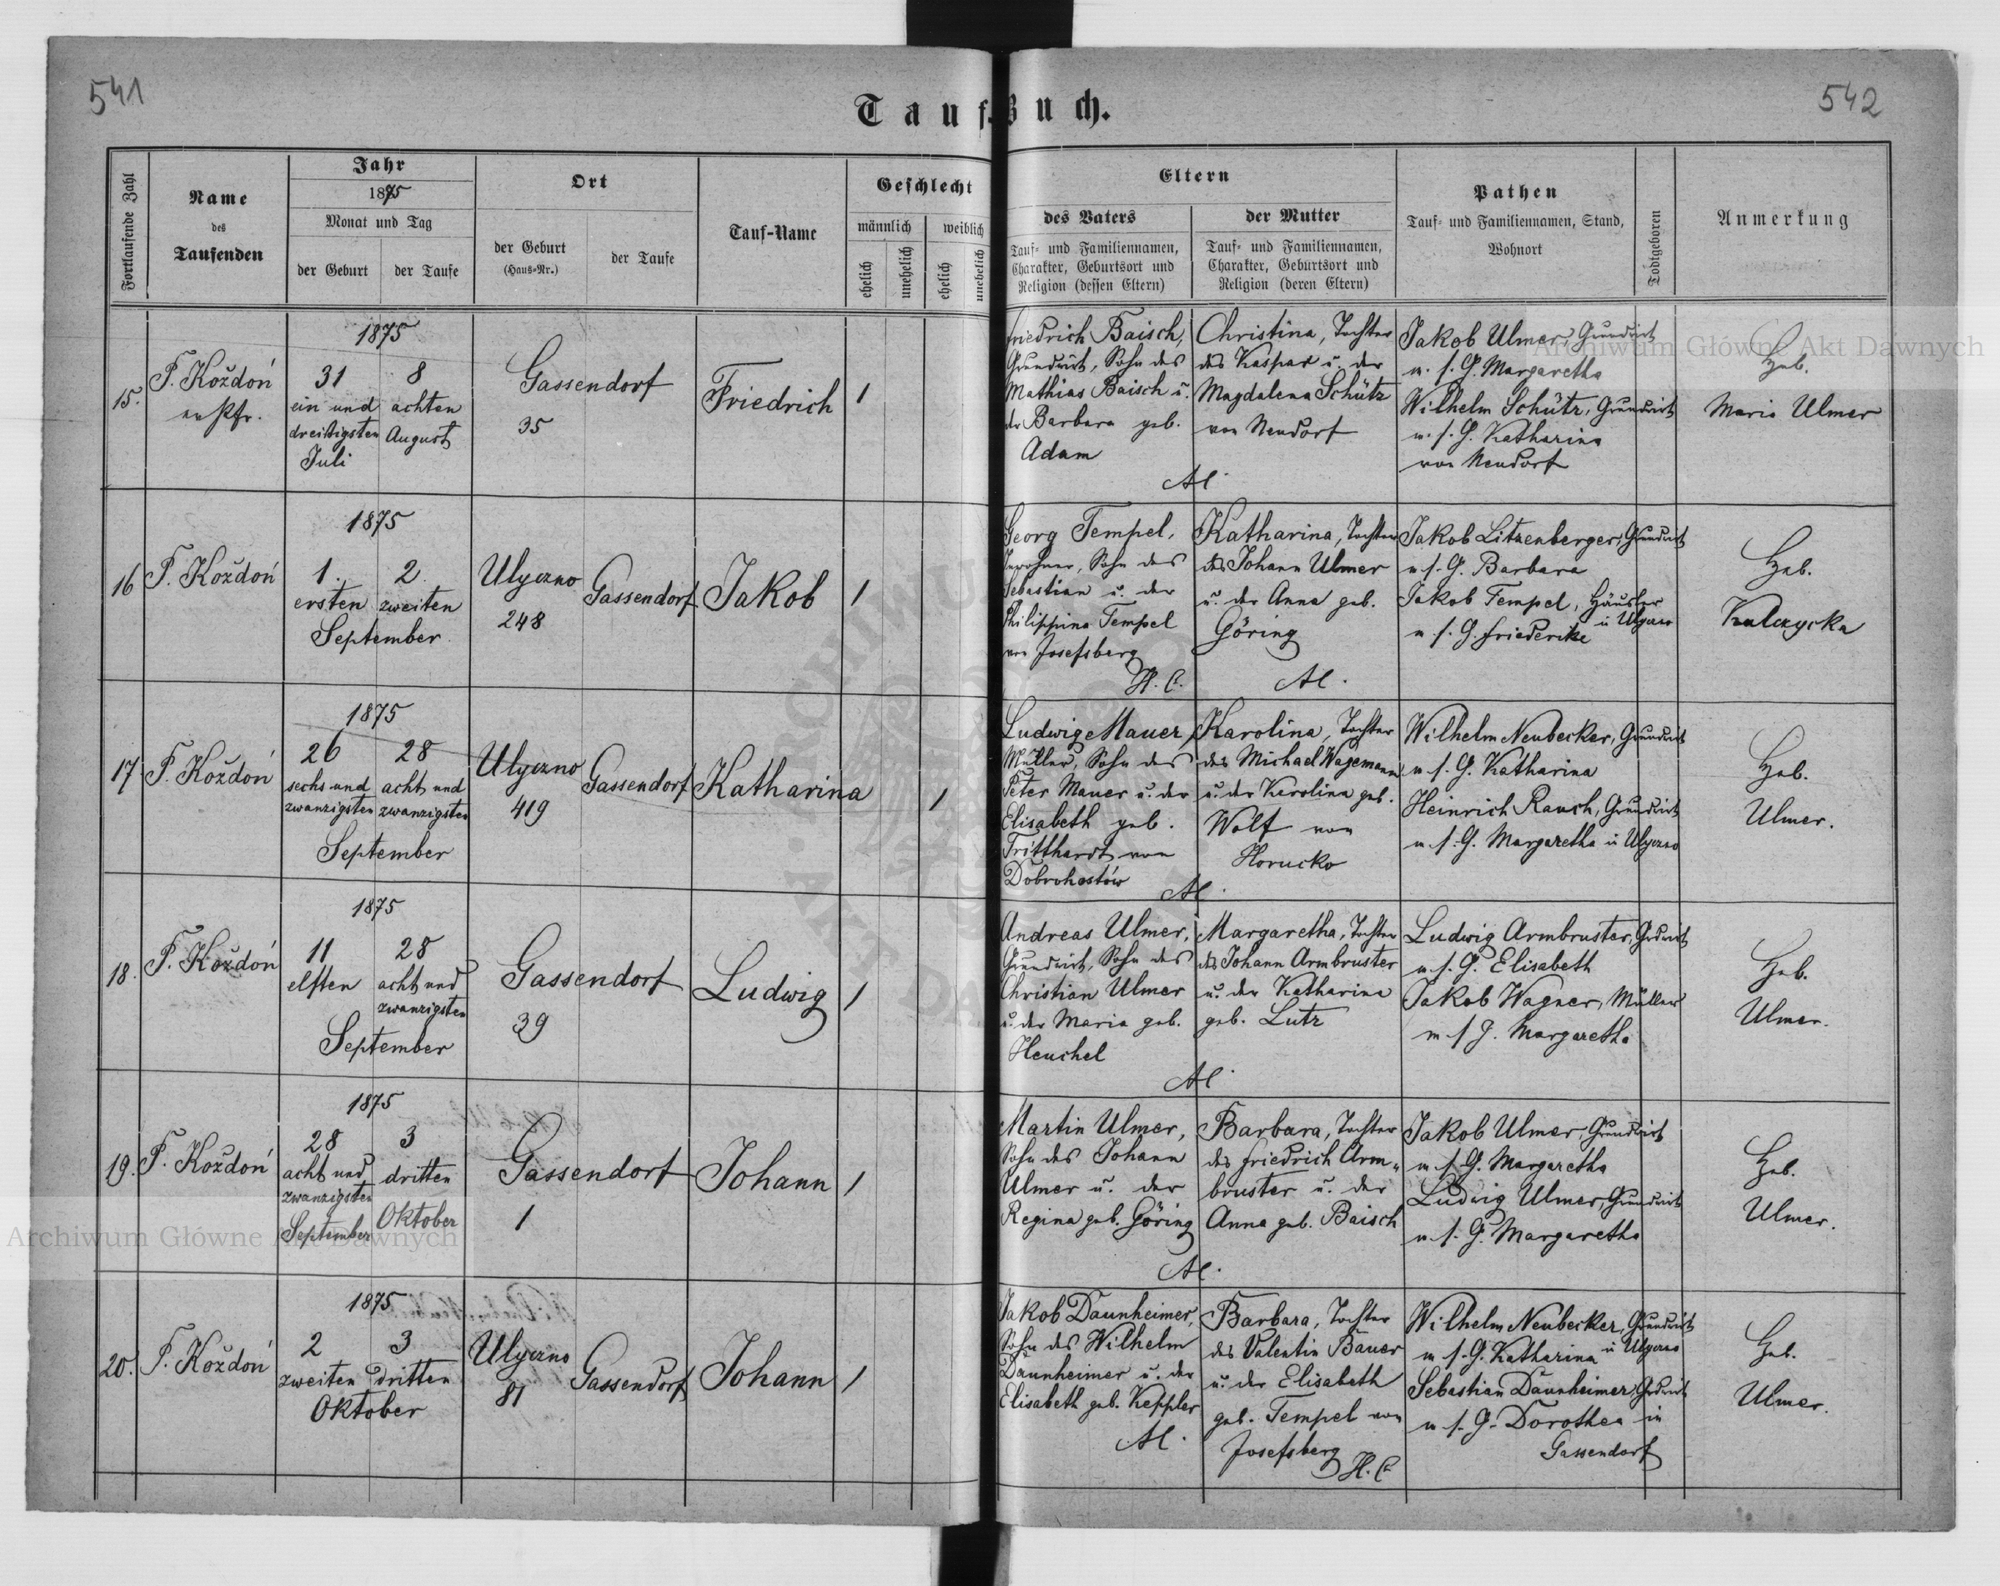 541
542
Tauf-Buch.
Fortlaufende Zahl
Name
des
Taufenden
Jahr
1875
Monat und Tag
der Geburt
der Taufe
Ort
der Geburt
(Haus-Nr.)
der Taufe
Tauf-Name
Geschlecht
männlich
weiblich
ehelich
unehelich
ehelich
unehelich
Eltern
des Vaters
Tauf- und Familiennamen,
Charakter, Geburtsort und
Religion (dessen Eltern)
der Mutter
Tauf- und Familiennamen,
Charakter, Geburtsort und
Religion (deren Eltern)
Pathen
Tauf- und Familiennamen, Stand,
Wohnort
Todtgeboren
Anmerkung
15.
F. Kożdoń
ev. Pfr.
1875
31
ein und
dreißigsten
Juli
8
achten
August
Gassendorf
35
Friedrich
1
Friedrich Baisch,
Grundwirt, Sohn des
Mathias Baisch u.
der Barbara geb.
Adam
Christina, Tochter
des Kaspar u. der
Magdalena Schütz
von Neudorf
AC.
Jakob Ulmer, Grundwirt
m. s. G. Margaretha
Wilhelm Schütz, Grundwirt
m. s. G. Katharina
von Neudorf
Heb.
Maria Ulmer
16
F. Kożdoń
1875
1.
ersten
2.
zweiten
September
Ulyczno
248
Gassendorf
Jakob
1
Georg Tempel,
Inwohner, Sohn des
Sebastian u. der
Philippina Tempel
von Josefsberg
H. C.
Katharina, Tochter
des Johann Ulmer
u. der Anna geb.
Göring
AC.
Jakob Litzenberger, Grundwirt
m. s. G. Barbara
Jakob Tempel, Häusler
m. s. G. Friederike
in Ulyczno
Heb.
Kulczycka
17
F. Kożdoń
1875
26
sechs und
zwanzigsten
28
acht und
zwanzigsten
September
Ulyczno
419
Gassendorf
Katharina
1
Ludwig Mauer,
Müller, Sohn des
Peter Mauer u. der
Elisabeth geb.
Tritthardt von
Dobrohostów
Karolina, Tochter
des Michael Wagemann
u. der Karolina geb.
Wolf von
Horucko
AC.
Wilhelm Neubecker, Grundwirt
m. s. G. Katharina
Heinrich Rauch, Grundwirt
m. s. G. Margaretha in Ulyczno
Heb.
Ulmer.
18.
F. Kożdoń
1875
11
elften
28
acht und
zwanzigsten
September
Gassendorf
39
Ludwig
1
Andreas Ulmer,
Grundwirt, Sohn des
Christian Ulmer
u. der Maria geb.
Heuchel
Margaretha, Tochter
des Johann Armbruster
u. der Katharina
geb. Lutz
AC.
Ludwig Armbruster, Grdwirt
m. s. G. Elisabeth
Jakob Wagner, Müller
m. s. G. Margaretha
Heb.
Ulmer.
19.
F. Kożdoń
1875
28
acht und
zwanzigsten
September
3
dritten
Oktober
Gassendorf
1
Johann
1
Martin Ulmer,
Sohn des Johann
Ulmer u. der
Regina geb. Göring
Barbara, Tochter
des Friedrich Arm-
bruster u. der
Anna geb. Baisch
AC.
Jakob Ulmer, Grundwirt
m. s. G. Margaretha
Ludwig Ulmer, Grundwirt
m. s. G. Margaretha
Heb.
Ulmer.
20.
F. Kożdoń
1875
2
zweiten
3
dritten
Oktober
Ulyczno
81
Gassendorf
Johann
1
Jakob Daunheimer,
Sohn des Wilhelm
Daunheimer u. der
Elisabeth geb. Keppler
AC.
Barbara, Tochter
des Valentin Bauer
u. der Elisabeth
geb. Tempel von
Josefsberg
H. C.
Wilhelm Neubecker, Grundwirt
m. s. G. Katharina in Ulyczno
Sebastian Daunheimer, Grdwirt
m. s. G. Dorothea in
Gassendorf
Heb.
Ulmer.
Archiwum Główne Akt Dawnych
Archiwum Główne Akt Dawnych